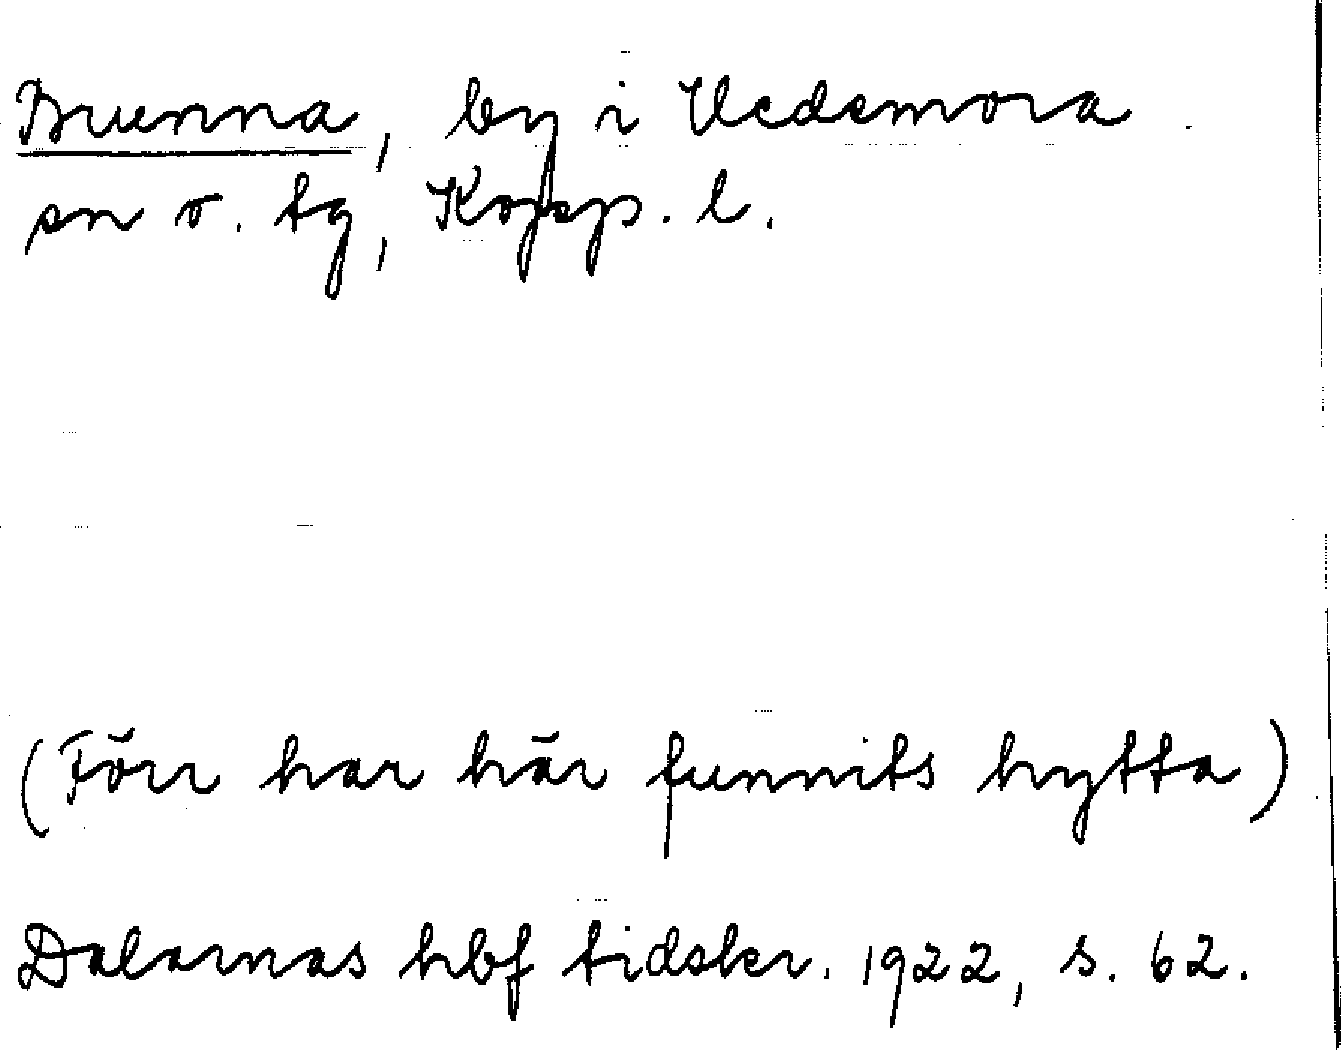 Brunna, by i Vedemora
sn o. tg, Kopp. l.
(Förr har här funnits hytta)
Dalarnas hbf tidskr. 1922, s. 62.